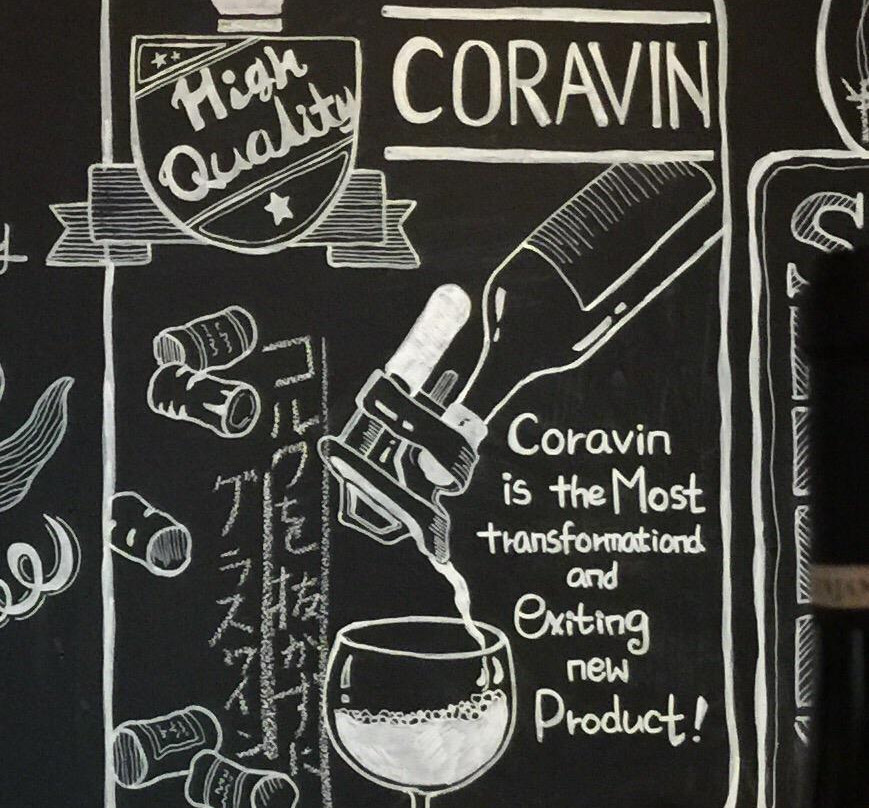 High
Quality
CORAVIN
コルクを抜かずに
グラスワイン
Coravin
is the Most
transformationd
and
Exiting
new
Product!